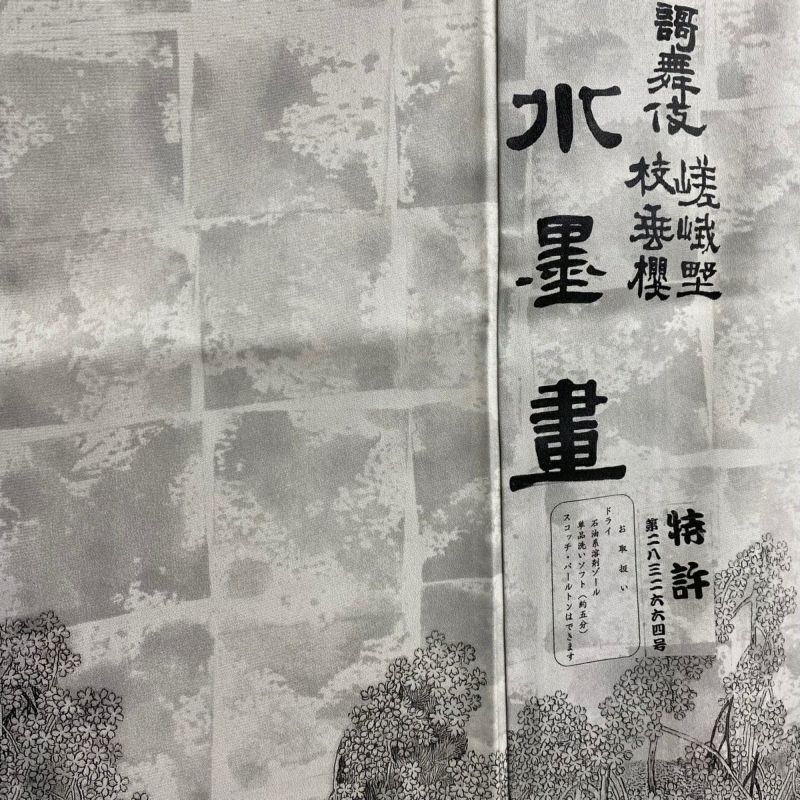 謌舞伎
嵯峨野
枝垂櫻
水墨畫
特許
第二八三二六六四号
お取扱い
ドライ
石油系溶剤ゾール
単品洗いソフト（約五分）
スコッチ・パールトンはできます